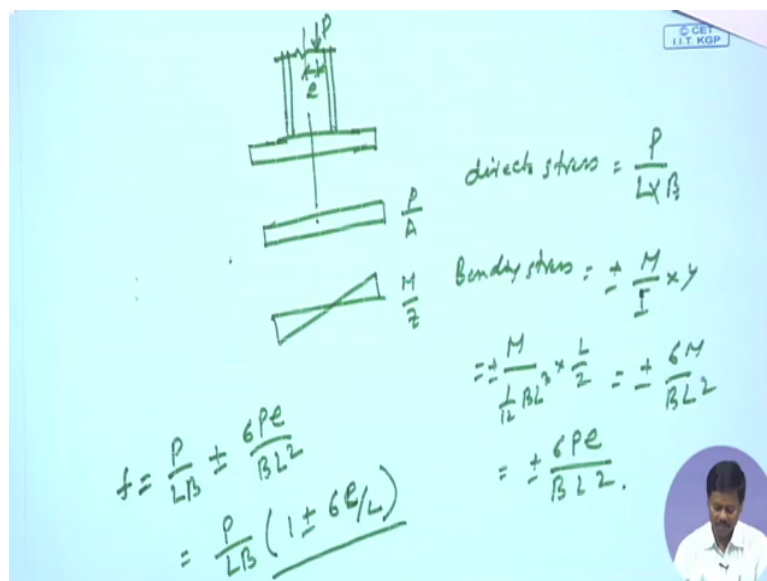 © CET
I.I.T. KGP
P
e
P/A
M/Z
direct stress = P/(L×B)
Bending stress = ± M/I × y
= ± M/(1/12 BL³) × L/2 = ± 6M/BL2
= ± 6Pe/BL2.
f = P/LB ± 6Pe/BL2
= P/LB (1 ± 6e/L)